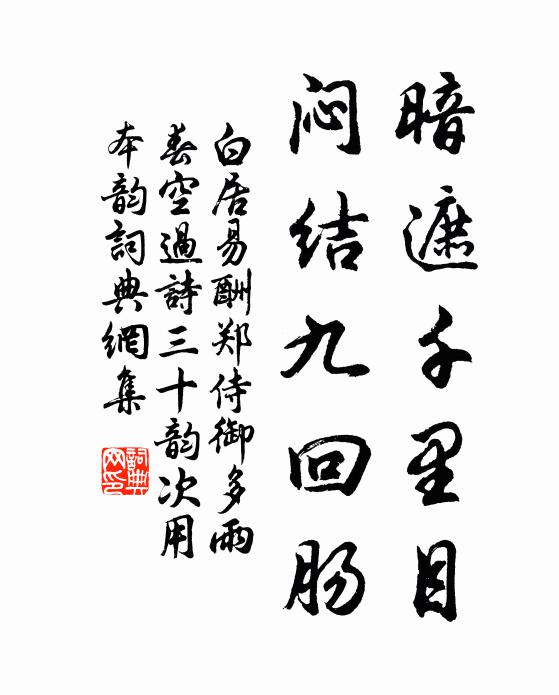 暗遮千里目
闷结九回肠
白居易酬郑侍御多雨
春空過詩三十韵次用
本韵詞典網集
詞典网印